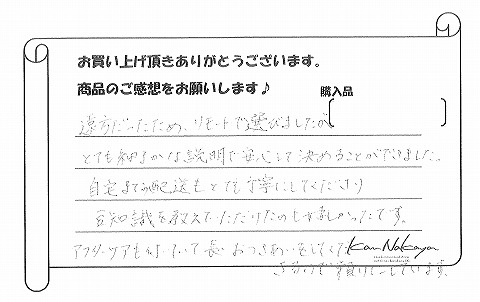 お買い上げ頂きありがとうございます。
商品のご感想をお願いします♪
購入品
遠方だったため、リモートで選びましたが
とても細やかな説明で安心して決めることができました。
自宅までの配送もとても丁寧にしてくださり
豆知識を教えていただけたのもうれしかったです。
アフターケアも付いていて長いおつきあいをしてくだ
さるので頼りにしています。
Kan Nakaya